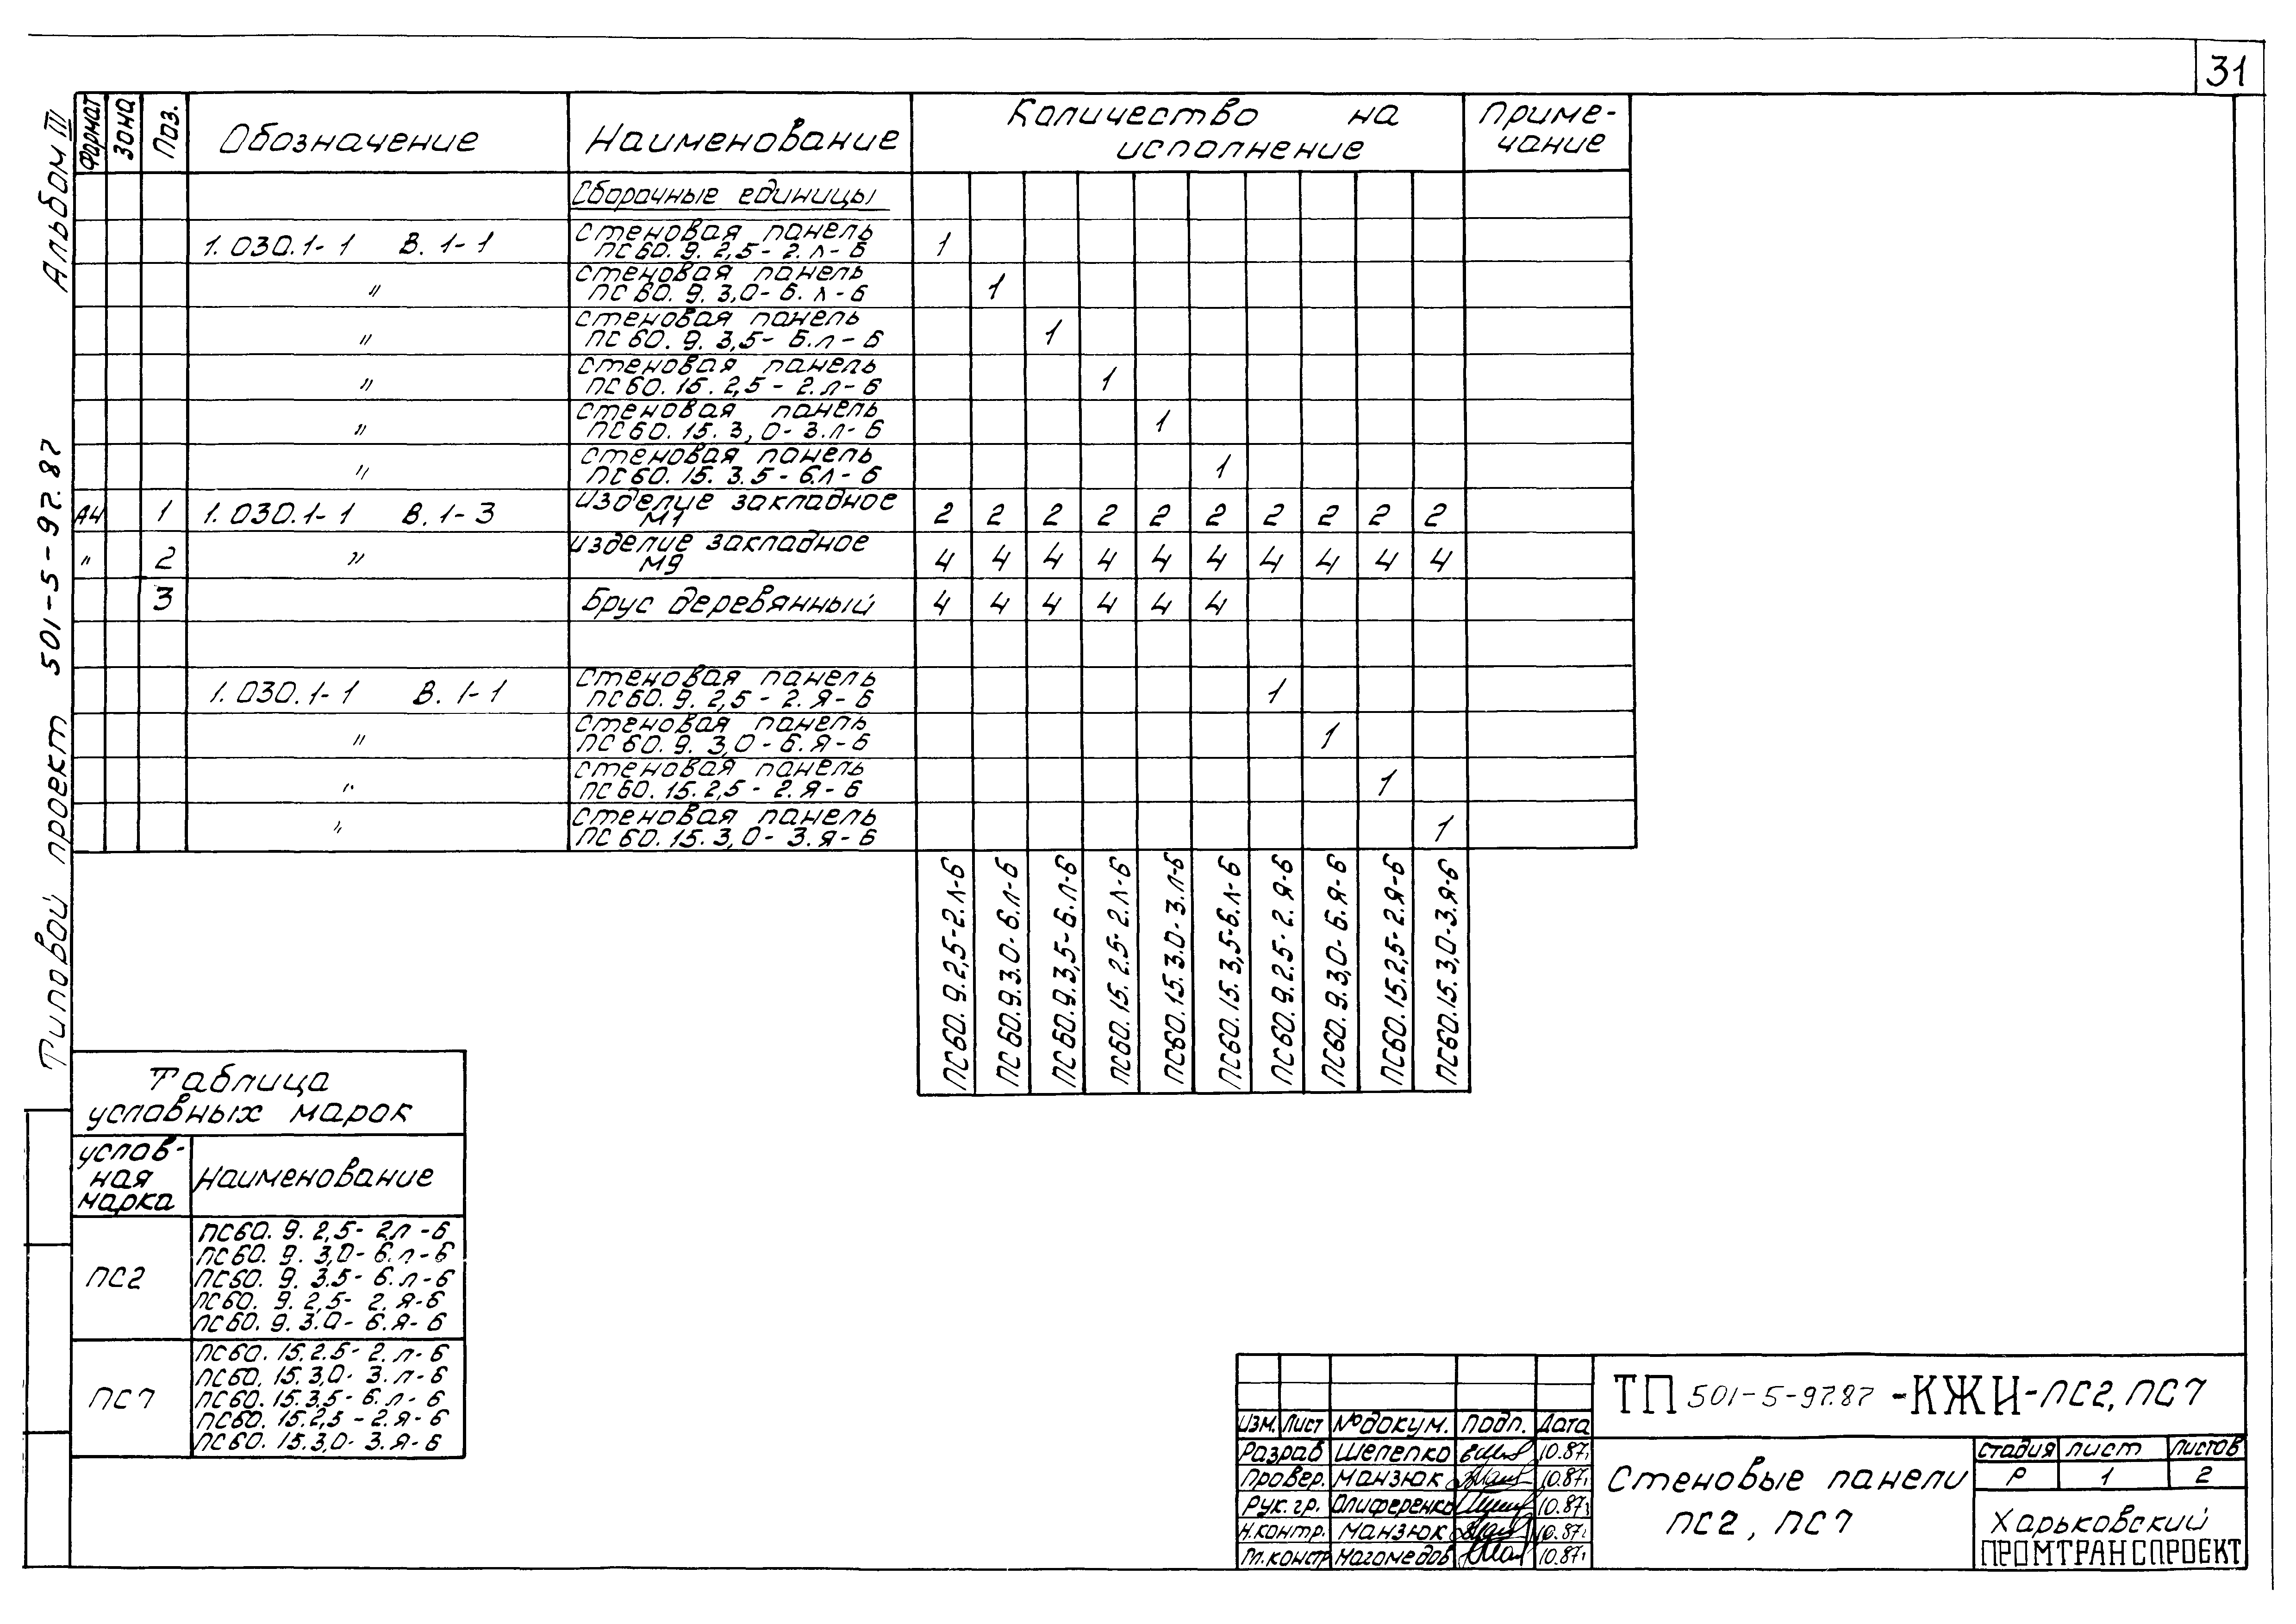 31
Альбом III
Типовой проект 501-5-97.87
Формат Зона Поз. Обозначение Наименование Количество на исполнение Приме-
чание
Сборочные единицы
1.030.1-1 В.1-1 Стеновая панель 1
ПС60.9.2,5-2.Л-Б
" Стеновая панель 1
ПС60.9.3,0-6.Л-Б
" Стеновая панель 1
ПС60.9.3,5-6.Л-Б
" Стеновая панель 1
ПС60.15.2,5-2.Л-Б
" Стеновая панель 1
ПС60.15.3,0-3.Л-Б
" Стеновая панель 1
ПС60.15.3.5-6.Л-Б
А4 1 1.030.1-1 В.1-3 Изделие закладное 2 2 2 2 2 2 2 2 2 2
М1
" 2 " Изделие закладное 4 4 4 4 4 4 4 4 4 4
М9
3 Брус деревянный 4 4 4 4 4 4
1.030.1-1 В.1-1 Стеновая панель 1
ПС60.9.2,5-2.Я-Б
" Стеновая панель 1
ПС60.9.3,0-6.Я-Б
" Стеновая панель 1
ПС60.15.2,5-2.Я-Б
" Стеновая панель 1
ПС60.15.3,0-3.Я-Б
ПС60.9.2,5-2.Л-Б
ПС60.9.3.0-6.Л-Б
ПС60.9.3,5-6.Л-Б
ПС60.15.2.5-2.Л-Б
ПС60.15.3.0-3.Л-Б
ПС60.15.3,5-6.Л-Б
ПС60.9.2.5-2.Я-Б
ПС60.9.3,0-6.Я-Б
ПС60.15.2,5-2.Я-Б
ПС60.15.3,0-3.Я-Б
Таблица
условных марок
Услов-
ная
марка
Наименование
ПС2
ПС60.9.2,5-2Л-Б
ПС60.9.3,0-6.Л-Б
ПС60.9.3.5-6.Л-Б
ПС60.9.2,5-2.Я-Б
ПС60.9.3.0-6.Я-Б
ПС7
ПС60.15.2.5-2.Л-Б
ПС60.15.3,0-3.Л-Б
ПС60.15.3,5-6.Л-Б
ПС60.15.2,5-2.Я-Б
ПС60.15.3,0-3.Я-Б
ТП 501-5-97.87-КЖИ-ПС2, ПС7
Изм. Лист №докум. Подп. Дата
Разраб Шепепко 10.87г
Провер. Манзюк 10.87г
Рук.гр. Олиференко 10.87г
Н.контр. Манзюк 10.87г
Гл.констр Магомедов 10.87г
Стеновые панели
ПС2, ПС7
Стадия Лист Листов
Р 1 2
Харьковский
ПРОМТРАНСПРОЕКТ